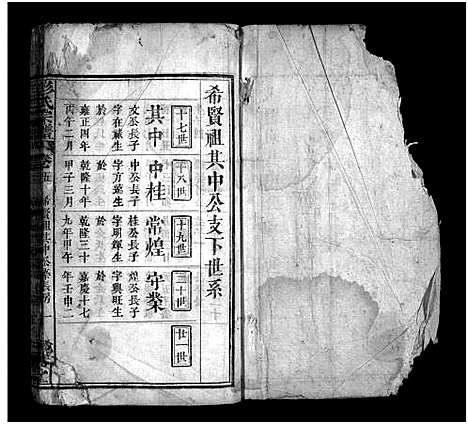 希賢祖其中公支下世系
十七世
十八世
十九世
二十世
廿一世
其中
文公長子
字在藏生
於
雍正四年
丙午二月
中桂
中公長子
字方蓬生
於
乾隆十年
甲子三月
常煌
桂公長子
字明輝生
於
乾隆三十
九年甲午
守業
煌公長子
字興旺生
於
嘉慶十七
年壬申二
氏宗譜
卷五
希賢祖其中公